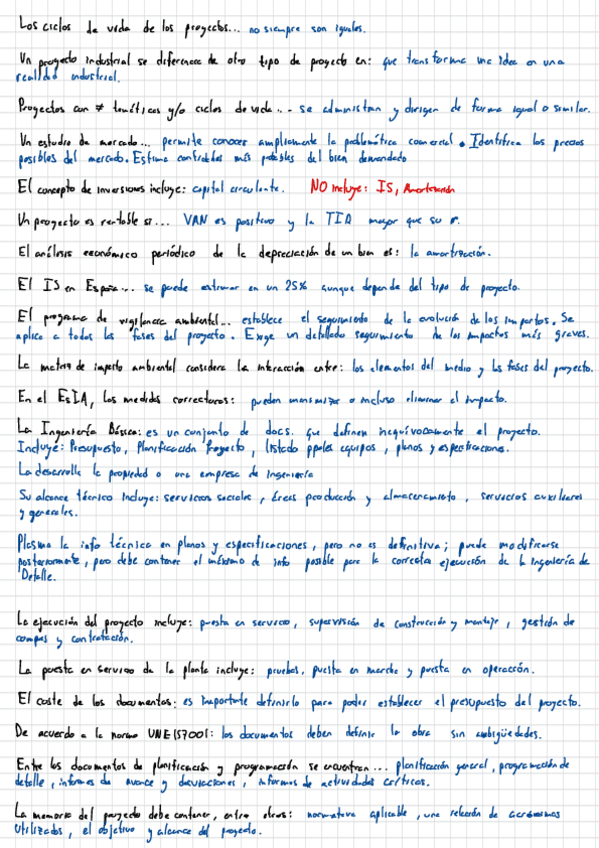 Los ciclos de vida de los proyectos... no siempre son iguales.
Un proyecto industrial se diferencia de otro tipo de proyecto en: que transforma una idea en una
realidad industrial.
Proyectos con ≠ temáticas y/o ciclos de vida... se administran y dirigen de forma igual o similar.
Un estudio de mercado... permite conocer ampliamente la problemática comercial. Identifica los precios
posibles del mercado. Estima cantidades más posibles del bien demandado
El concepto de inversiones incluye: capital circulante. NO incluye: IS, Amortización
Un proyecto es rentable si... VAN es positivo y la TIR mayor que su r.
El análisis económico periódico de la depreciación de un bien es: la amortización.
El IS en España... se puede estimar en un 25% aunque depende del tipo de proyecto.
El programa de vigilancia ambiental... establece el seguimiento de la evolución de los impactos. Se
aplica a todas las fases del proyecto. Exige un detallado seguimiento de los impactos más graves.
La matriz de impacto ambiental considera la interacción entre: los elementos del medio y las fases del proyecto.
En el EsIA, las medidas correctoras: pueden minimizar o incluso eliminar el impacto.
La Ingeniería Básica: es un conjunto de docs. que definen inequívocamente el proyecto.
Incluye: Presupuesto, Planificación Proyecto, listado ppales equipos, planos y especificaciones.
La desarrolla la propiedad o una empresa de ingeniería
Su alcance técnico incluye: servicios sociales, áreas producción y almacenamiento, servicios auxiliares
y generales.
Plasma la info técnica en planos y especificaciones, pero no es definitiva; puede modificarse
posteriormente, pero debe contener el máximo de info posible para la correcta ejecución de la Ingeniería de
Detalle.
La ejecución del proyecto incluye: puesta en servicio, supervisión de construcción y montaje, gestión de
compras y contratación.
La puesta en servicio de la planta incluye: pruebas, puesta en marcha y puesta en operación.
El coste de los documentos: es importante definirlo para poder establecer el presupuesto del proyecto.
De acuerdo a la norma UNE157001: los documentos deben definir la obra sin ambigüedades.
Entre los documentos de planificación y programación se encuentran... planificación general, programación de
detalle, informes de avance y desviaciones, informes de actividades críticas.
La memoria del proyecto debe contener, entre otros: normativa aplicable, una relación de acrónimos
utilizados, el objetivo y alcance del proyecto.